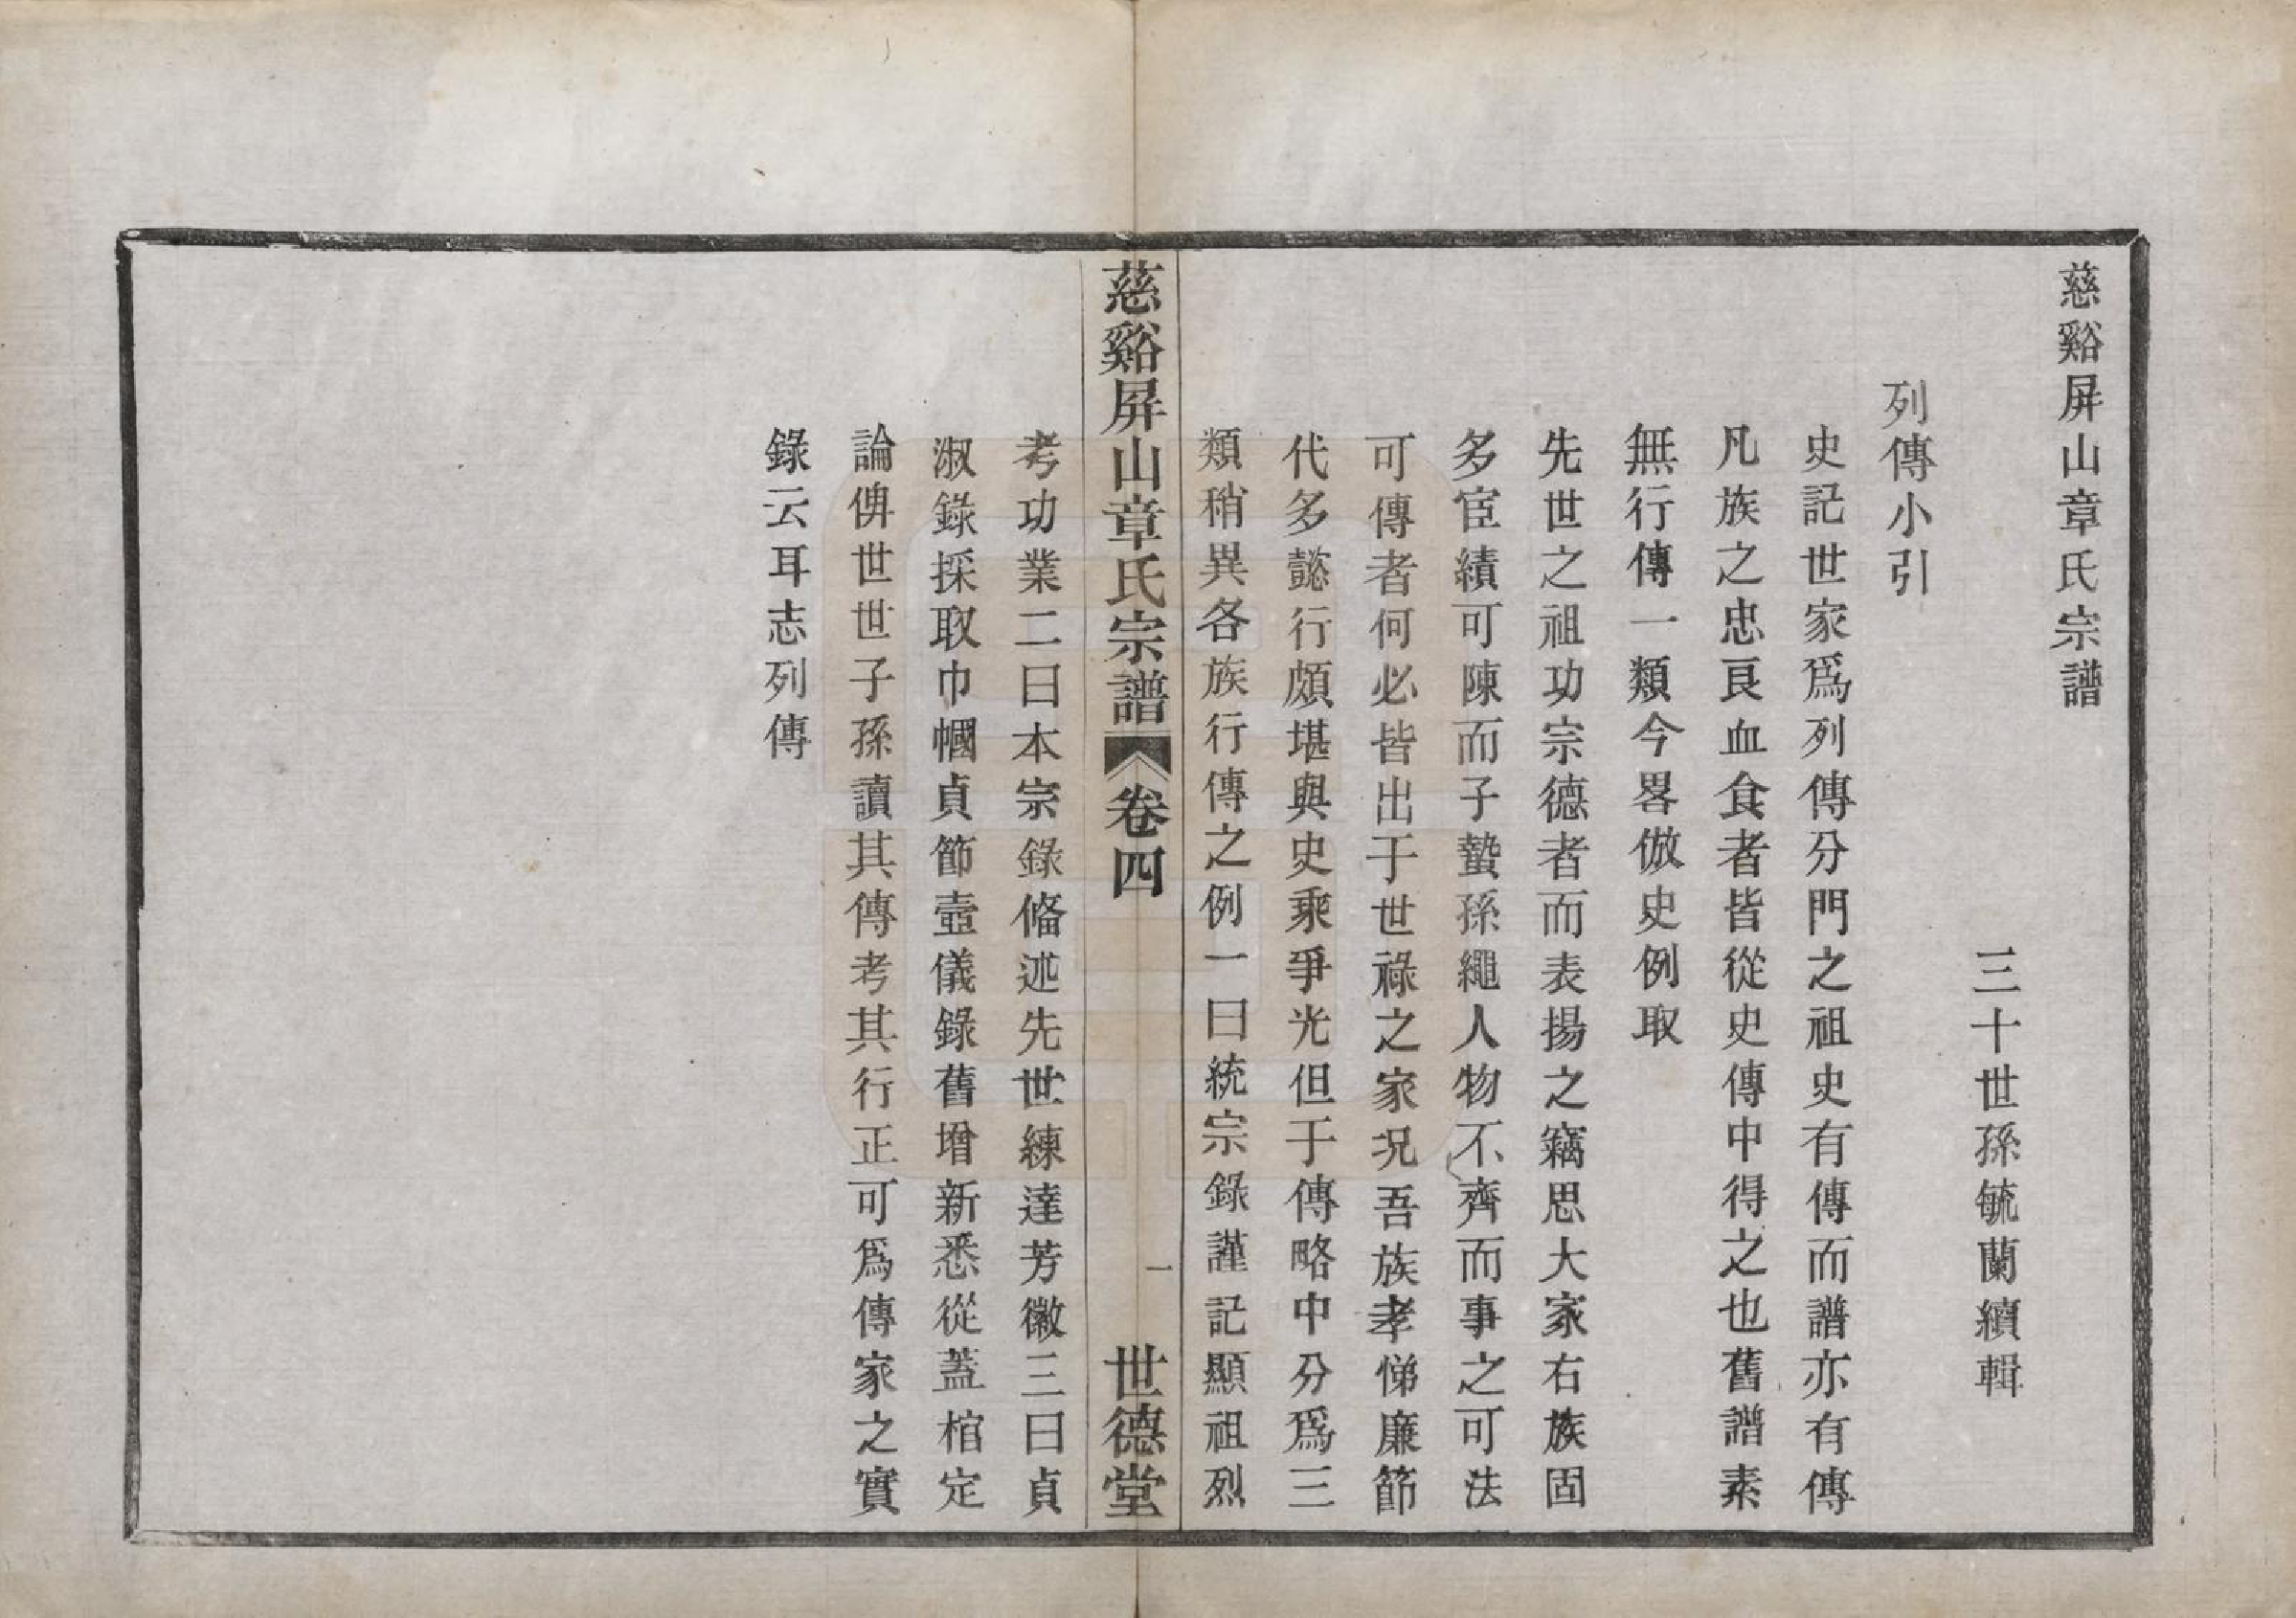 慈谿屏山章氏宗譜
三十世孫毓蘭續輯
列傳小引
史記世家爲列傳分門之祖史有傳而譜亦有傳
凡族之忠良血食者皆從史傳中得之也舊譜素
無行傳一類今畧倣史例取
先世之祖功宗德者而表揚之竊思大家右族固
多宦績可陳而子蟄孫繩人物不齊而事之可法
可傳者何必皆出于世祿之家況吾族孝悌廉節
代多懿行頗堪與史乘爭光但于傳略中分爲三
類稍異各族行傳之例一曰統宗錄謹記顯祖烈
慈谿屏山章氏宗譜 卷四 一 世德堂
考功業二曰本宗錄偹述先世練達芳徽三曰貞
淑錄採取巾幗貞節壼儀錄舊增新悉從蓋棺定
論俾世世子孫讀其傳考其行正可爲傳家之實
錄云耳志列傳